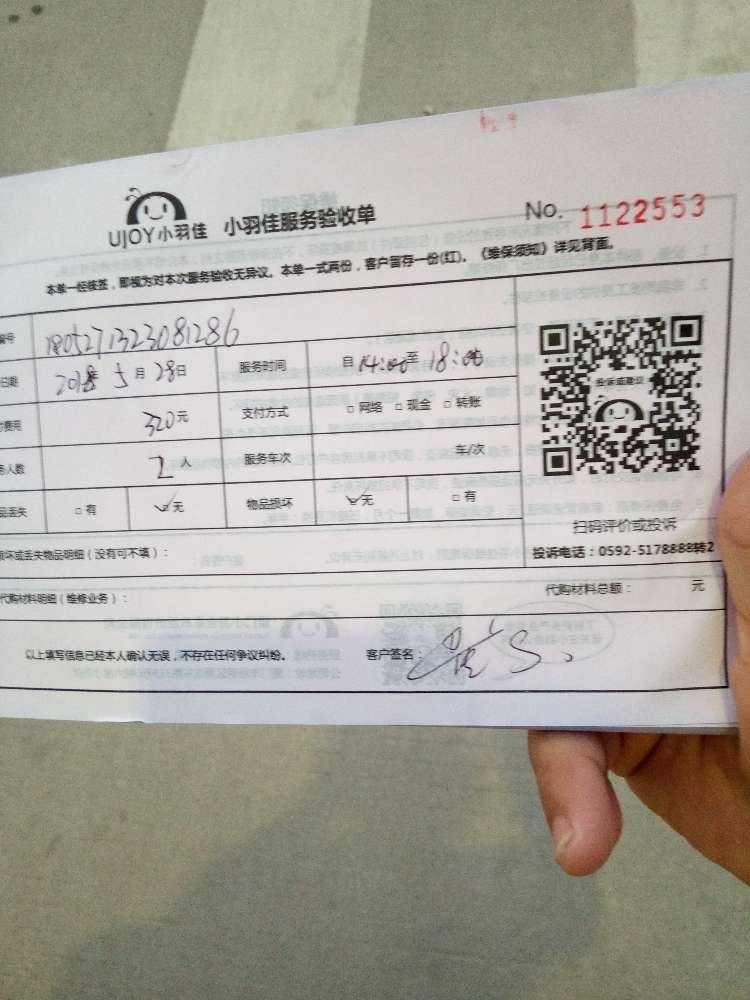 UJOY小羽佳 小羽佳服务验收单 No. 1122553
本单一经核签，即视为对本次服务验收无异议。本单一式两份，客户留存一份(红)。《维保须知》详见背面。
编号 1805271323081286
日期 2018年5月28日 服务时间 自14:00至18:00
费用 320元 支付方式 □网络 □现金 □转账
务人数 2人 服务车次 车/次
品丢失 □有 ☑无 物品损坏 ☑无 □有
投诉或建议
扫码评价或投诉
投诉电话：0592-5178888转2
损坏或丢失物品明细（没有可不填）：
代购材料明细（维修业务）： 代购材料总额： 元
以上填写信息已经本人确认无误，不存在任何争议纠纷。 客户签名：